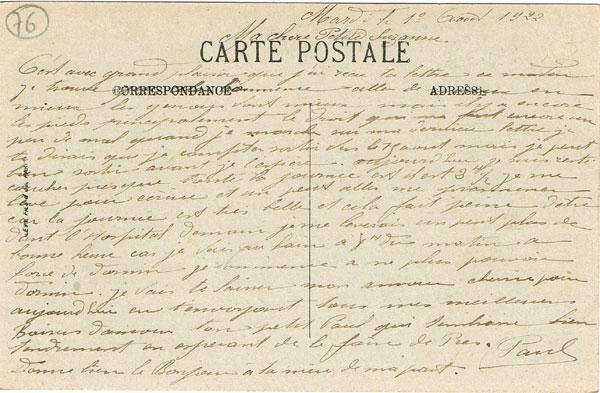 76
Mardi le 1o Aout 1922
Ma chere Petite Suzanne
CARTE POSTALE
CORRESPONDANCE
ADRESSE
C'est avec grand plaisir que j'ai recu ta lettre ce matin
je commence aller de en
mieux les genoux vont mieux mais il y a encore
les pieds principalement le droit qui me fait encore un
peu de mal quand je marche sur ma derniere lettre je
te disais que je compter sortir le 15 aout mais je peut
bien sortir avant je l'espere. aujourd'hui je suis resté
coucher presque toute la journée est c'est 3h je me
leve pour ecrire et un peut aller me promener
car la journée est tres belle et cela fait peine d'etre
dans l'Hospital demain je me leverais un peut plus de
bonne heure car je vais au bain a 8h du matin a
force de dormir je commence a ne plus pouvoir
dormir. je vais te laisser mon amour cherie pour
aujourd'hui en t'envoyant tous mes meilleurs
Baisers d'amour ton petit Paul qui t'embrasse bien
tendrement en esperant de le faire de Pres. Paul
Donne bien le Bonjour à ta mère de ma part.